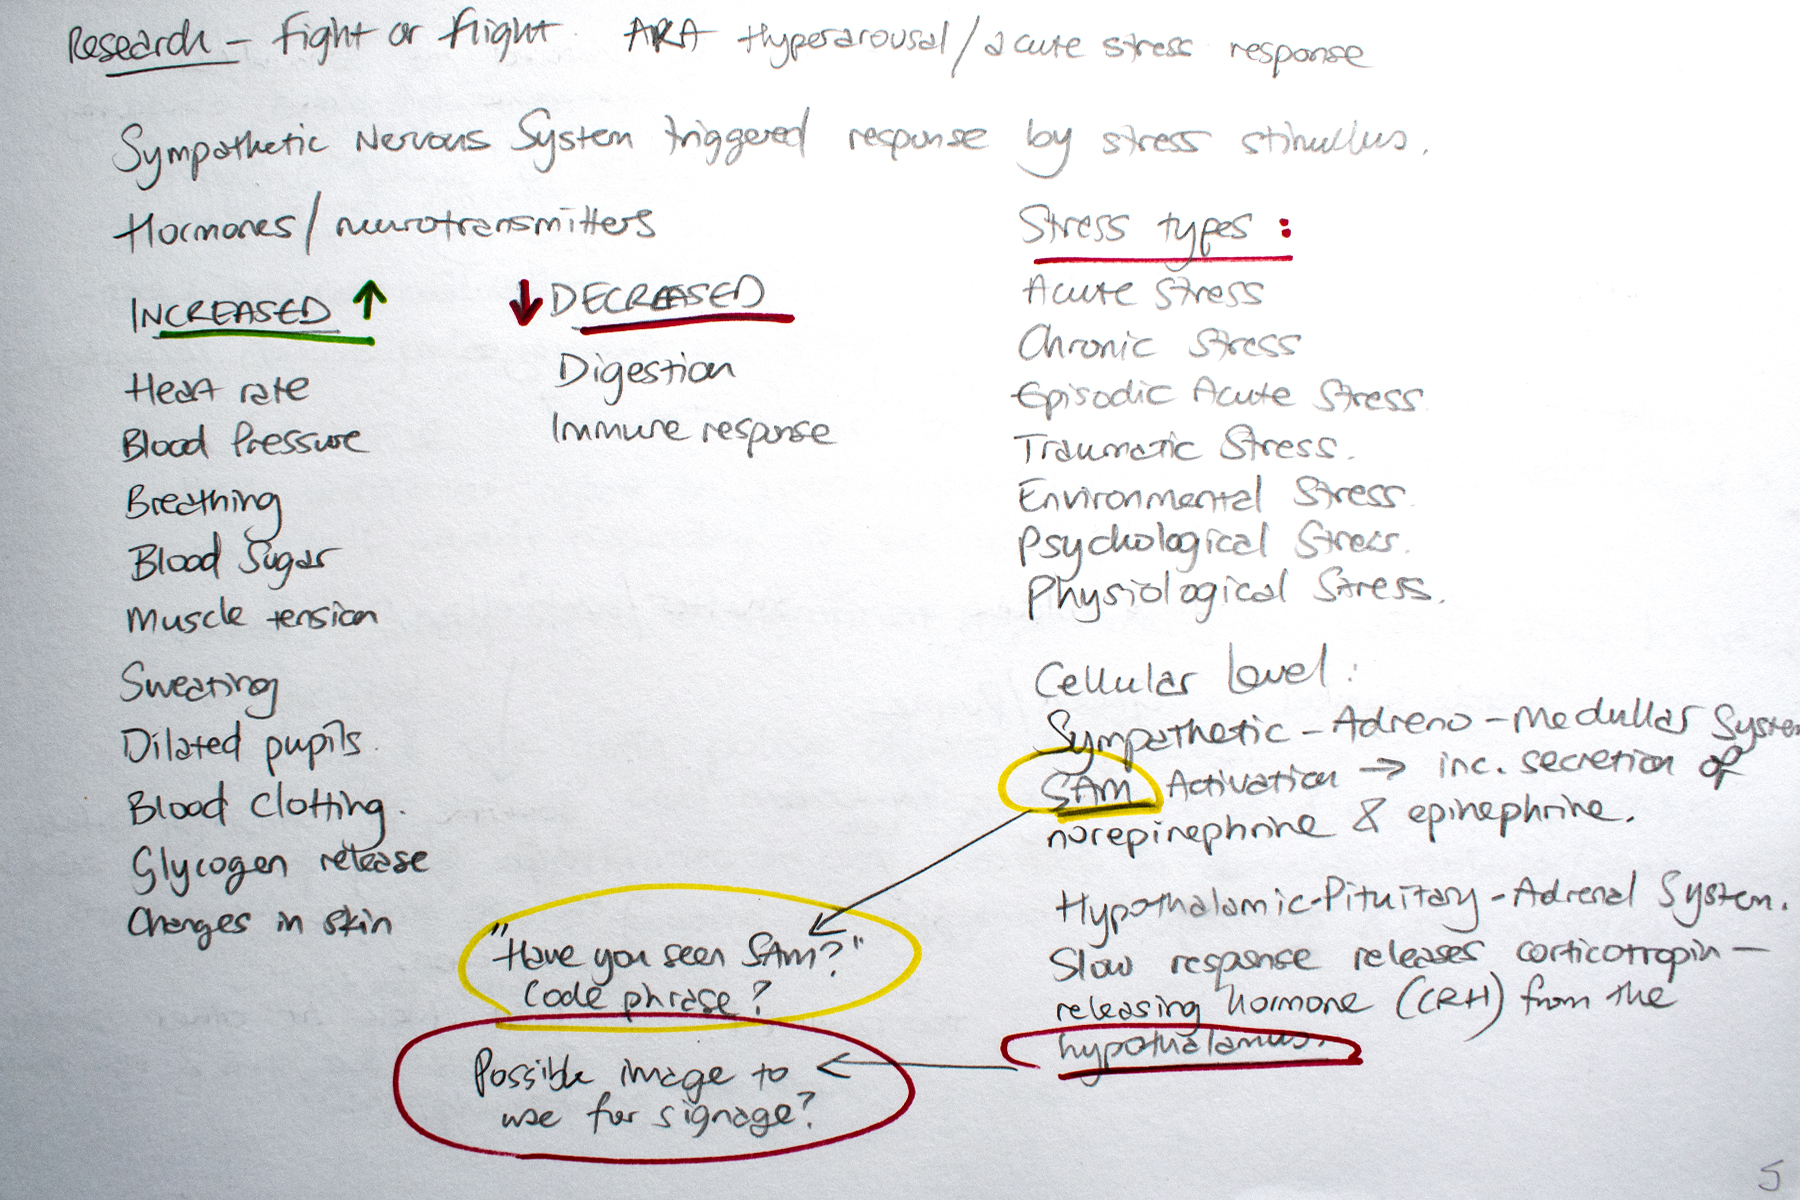 Research - Fight or flight. AKA Hyperarousal/acute stress response
Sympathetic Nervous System triggered response by stress stimullus.
Hormones/neurotransmitters
INCREASED ↑
Heart rate
Blood Pressure
Breathing
Blood Sugar
Muscle tension
Sweating
Dilated pupils.
Blood Clotting.
Glycogen release
Changes in skin
↓ DECREASED
Digestion
Immune response
Stress types:
Acute Stress
Chronic Stress
Episodic Acute Stress.
Traumatic Stress.
Environmental Stress.
Psychological Stress.
Physiological Stress.
Cellular Level:
Sympathetic - Adreno - Medullar System
SAM Activation → inc. secretion of
norepinephrine & epinephrine.
Hypothalamic-Pituitary-Adrenal System.
Slow response releases corticotropin-
releasing hormone (CRH) from the
hypothalamus.
"Have you seen SAM?"
Code phrase?
Possible image to
use for signage?
5